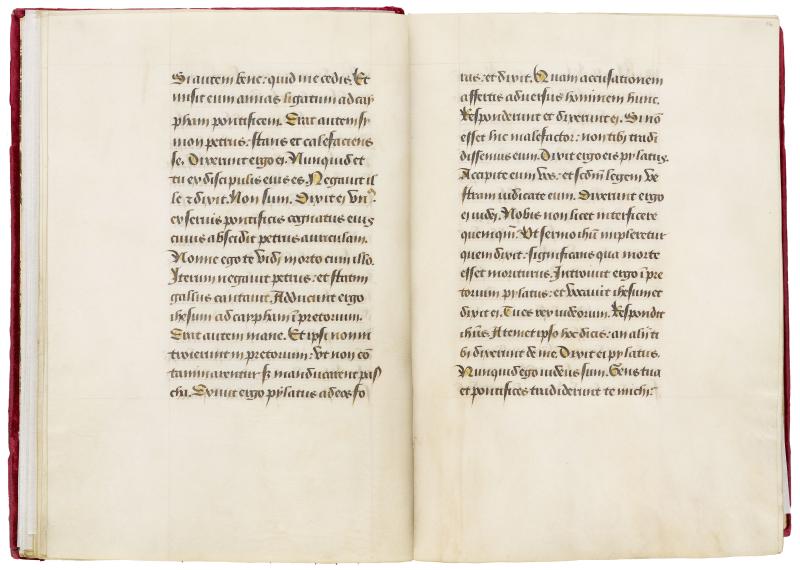 Si autem bene: quid me cedis. Et
misit eum annas ligatum ad cay
pham pontificem. Erat autem sy
mon petrus: stans et calefaciens
se. Dixerunt ergo ei. Nunquid et
tu ex discipulis eius es. Negauit il
le ⁊ dixit. Non sum. Dixit ei vn᷒.
ex seruis pontificis cognatus eiꝰ
cuius abscidit petrus auriculam.
Nonne ego te vidi in orto cum illo.
Iterum negauit petrus: et statim
gallus cantauit. Adducunt ergo
ihesum ad caypham ī pretorium.
Erat autem mane. Et ipsi non in
troierunt in pretorium: vt non cō
taminarentur sꝫ manducarent pas
cha. Exiuit ergo pylatus ad eos fo
ras: et dixit. Quam accusationem
affertis aduersus hominem hunc.
Responderunt et dixerunt ei. Si nō
esset hic malefactor: non tibi tradi
dissemus eum. Dixit ergo eis pylatꝰ.
Accipite eum vos: et scdm̄ legem ve
stram iudicate eum. Dixerunt ergo
ei iudei. Nobis non licet interficere
quemqm̄. Vt sermo ihū impleretur
quem dixit: significans qua morte
esset moriturus. Introiuit ergo ī pre
torium pylatus: et vocauit ihesum et
dixit ei. Tu es rex iudeorum. Respondit
ihūs. A temet ipso hoc dicis: an alii ti
bi dixerunt de me. Dixit ei pylatus.
Nunquid ego iudeus sum. Gens tua
et pontifices tradiderunt te michi: